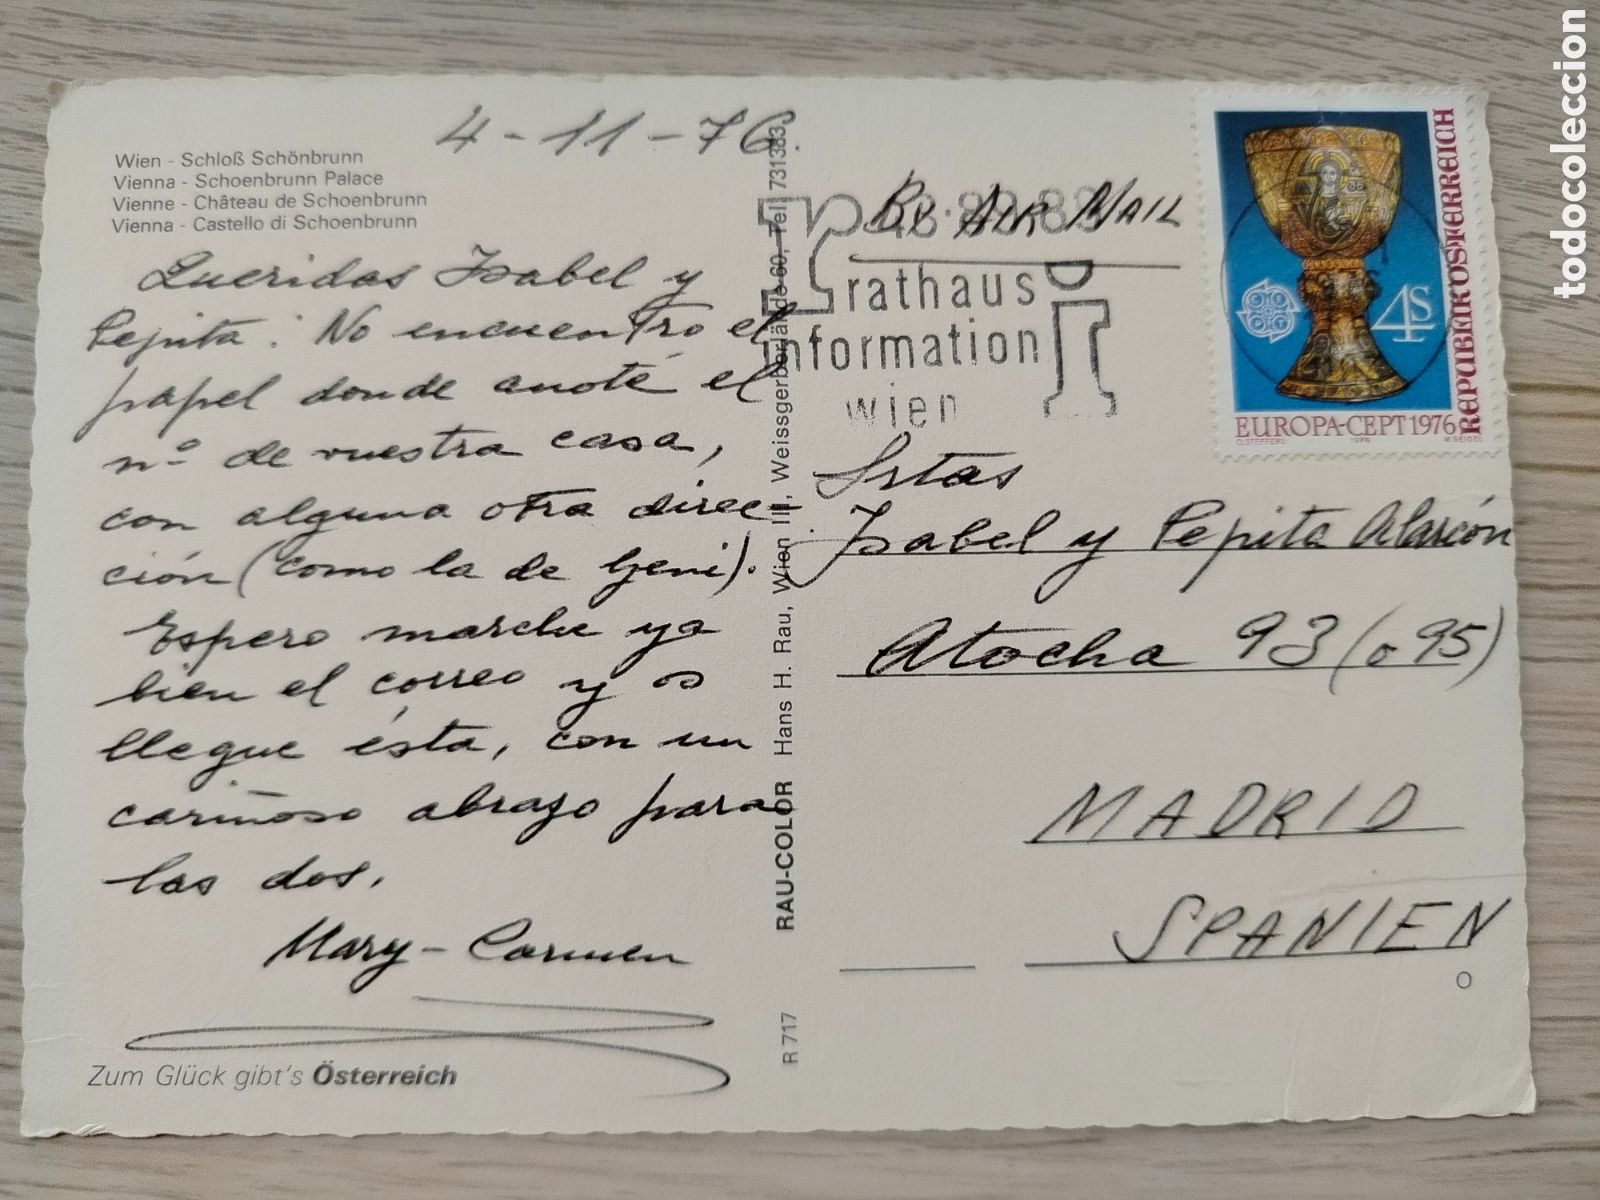 4-11-76.
Wien - Schloß Schönbrunn
Vienna - Schoenbrunn Palace
Vienne - Château de Schoenbrunn
Vienna - Castello di Schoenbrunn
Queridas Isabel y
Pepita: No encuentro el
papel donde anoté el
nº de vuestra casa,
con alguna otra direc-
ción (como la de Geni).
Espero marche ya
bien el correo y os
llegue ésta, con un
cariñoso abrazo para
las dos.
Mary-Carmen
Zum Glück gibt's Österreich
R 717 RAU-COLOR Hans H. Rau, Wien III, Weissgerberlände 60, Tel. 731383
BY AIR MAIL
rathaus
information
wien
REPUBLIK ÖSTERREICH
4S
EUROPA-CEPT 1976
O. STEFFERL 1976 W. SEIDEL
Srtas
Isabel y Pepita Alarcón
Atocha 93 (o 95)
MADRID
SPANIEN
O
todocoleccion